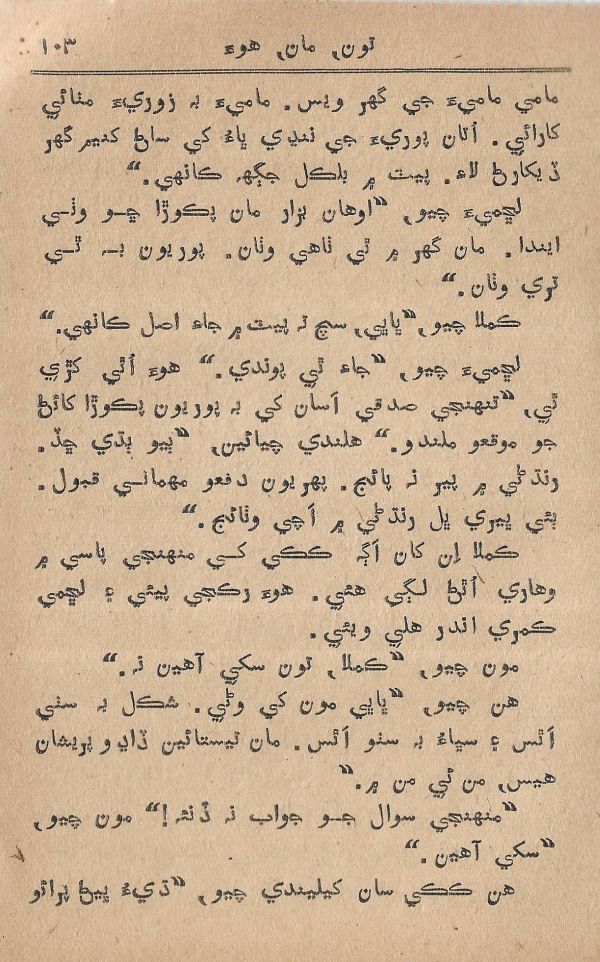 تون, مان, هوءَ ١٠٣
مامي ماميءَ جي گهر ويس. ماميءَ بہ زوريءَ مٺائي
کارائي. اُتان پوريءَ جي ننڍي ڀاءُ کي ساڻ کنيم گهر
ڏيکارڻ لاءِ. پيٽ ۾ بلڪل جڳهہ ڪانهي.“
لڇميءَ چيو, ”اوهان بزار مان پڪوڙا ڇو وٺي
ايندا. مان گهر ۾ ئي ٺاهي وٺان. پوريون بہ ٿي
تري وٺان.“
ڪملا چيو, ”ڀاڀي, سچ تہ پيٽ ۾ جاءِ اصل ڪانهي.“
لڇميءَ چيو, ”جاءِ ٿي پوندي.“ هوءَ اُٿي کڙي
ٿي, ”تنهنجي صدقي اَسان کي بہ پوريون پڪوڙا کائڻ
جو موقعو ملندو.“ هلندي چيائين, ”ٻيو ٻڌي ڇڏ.
رنڌڻي ۾ پير نہ پائج. پهريون دفعو مهماني قبول.
ٻئي ڀيري ڀل رنڌڻي ۾ اَچي وٺائج.“
ڪملا اِن کان اَڳہ ڪڪي کي منهنجي پاسي ۾
وهاري اُٿڻ لڳي هئي. هوءَ رڪجي پيئي ۽ لڇمي
ڪمري اندر هلي ويئي.
مون چيو, ”ڪملا, تون سکي آهين نہ.“
هن چيو, ”ڀاڀي مون کي وڻي. شڪل بہ سٺي
اَٿس ۽ سڀاءُ بہ سٺو اَٿس. مان تيستائين ڏاڍو پريشان
هيس, من ئي من ۾.“
”منهنجي سوال جو جواب نہ ڏنئہ!“ مون چيو,
”سکي آهين.“
هن ڪڪي سان کيليندي چيو, ”ڌيءُ ڀيڻ پرائو